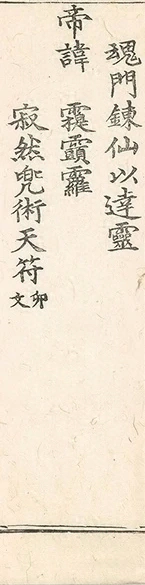 瑰門鍊仙以達靈
帝諱
寂然兜術天符卯文